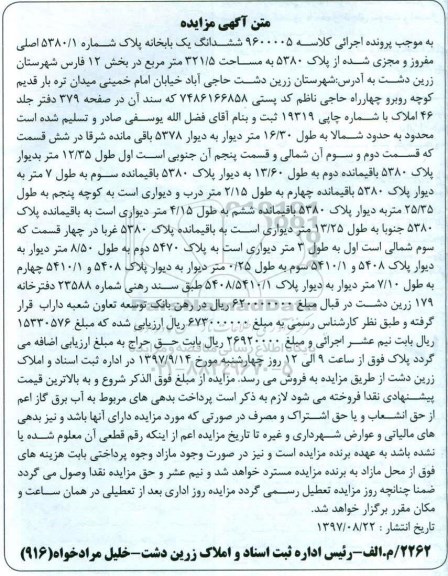 متن آگهی مزایده
به موجب پرونده اجرائی کلاسه ۹۶۰۰۰۰۵ ششدانگ یک بابخانه پلاک شماره ۵۳۸۰/۱ اصلی
مفروز و مجزی شده از پلاک ۵۳۸۰ به مساحت ۳۲۱/۵ متر مربع در بخش ۱۲ فارس شهرستان
زرین دشت به آدرس:شهرستان زرین دشت حاجی آباد خیابان امام خمینی میدان تره بار قدیم
کوچه روبرو چهارراه حاجی ناظم کد پستی ۷۴۸۶۱۶۶۸۵۸ که سند آن در صفحه ۳۷۹ دفتر جلد
۴۶ املاک با شماره چاپی ۱۹۳۱۹ ثبت و بنام آقای فضل الله یوسفی صادر و تسلیم شده است
محدود به حدود شمالا به طول ۱۶/۳۰ متر دیوار به دیوار ۵۳۷۸ باقی مانده شرقا در شش قسمت
که قسمت دوم و سوم آن شمالی و قسمت پنجم آن جنوبی است اول طول ۱۲/۳۵ متر بدیوار
پلاک ۵۳۸۰ باقیمانده دوم به طول ۱۳/۶۰ به دیوار پلاک ۵۳۸۰ باقیمانده سوم به طول ۷ متر به
دیوار پلاک ۵۳۸۰ باقیمانده چهارم به طول ۲/۱۵ متر درب و دیواری است به کوچه پنجم به طول
۲۵/۳۵ متربه دیوار پلاک ۵۳۸۰ باقیمانده ششم به طول ۴/۱۵ متر دیواری است به باقیمانده پلاک
۵۳۸۰ جنوبا به طول ۱۳/۲۵ متر دیواری است به باقیمانده پلاک ۵۳۸۰ غربا در چهار قسمت که
سوم شمالی است اول به طول ۳ متر دیواری است به پلاک ۵۴۷۰ دوم به طول ۸/۵۰ متر دیوار به
دیوار پلاک ۵۴۰۸ و ۵۴۱۰/۱ سوم به طول ۰/۲۵ متر دیوار به دیوار پلاک ۵۴۰۸ و ۵۴۱۰/۱ چهارم
به طول ۷/۱۰ متر دیوار به دیوار پلاک ۵۴۰۸/۵۴۱۰/۱ طبق سند رهنی شماره ۲۳۵۸۸ دفترخانه
۱۷۹ زرین دشت در قبال مبلغ ۶۲۰۰۰۰۰۰۰ ریال در رهن بانک توسعه تعاون شعبه داراب قرار
گرفته و طبق نظر کارشناس رسمی به مبلغ ۶۷۳۰۰۰۰۰۰ ریال ارزیابی شده که مبلغ ۱۵۳۳۰۵۷۶
ریال بابت نیم عشر اجرائی و مبلغ ۲۶۹۲۰۰۰۰ ریال بابت حق حراج به مبلغ ارزیابی اضافه می
گردد پلاک فوق از ساعت ۹ الی ۱۲ روز چهارشنبه مورخ ۱۳۹۷/۹/۱۴ در اداره ثبت اسناد و املاک
زرین دشت از طریق مزایده به فروش می رسد. مزایده از مبلغ فوق الذکر شروع و به بالاترین قیمت
پیشنهادی نقدا فروخته می شود لازم به ذکر است پرداخت بدهی های مربوط به آب برق گاز اعم
از حق انشعاب و یا حق اشتراک و مصرف در صورتی که مورد مزایده دارای آنها باشد و نیز بدهی
های مالیاتی و عوارض شهرداری و غیره تا تاریخ مزایده اعم از اینکه رقم قطعی آن معلوم شده یا
نشده باشد به عهده برنده مزایده است و نیز در صورت وجود مازاد وجوه پرداختی بابت هزینه های
فوق از محل مازاد به برنده مزایده مسترد خواهد شد و نیم عشر و حق مزایده نقدا وصول می گردد
ضمنا چنانچه روز مزایده تعطیل رسمی گردد مزایده روز اداری بعد از تعطیلی در همان ساعت و
مکان مقرر برگزار خواهد شد.
تاریخ انتشار : ۱۳۹۷/۰۸/۲۲
۲۲۶۲/م.الف-رئیس اداره ثبت اسناد و املاک زرین دشت-خلیل مرادخواه(۹۱۶)